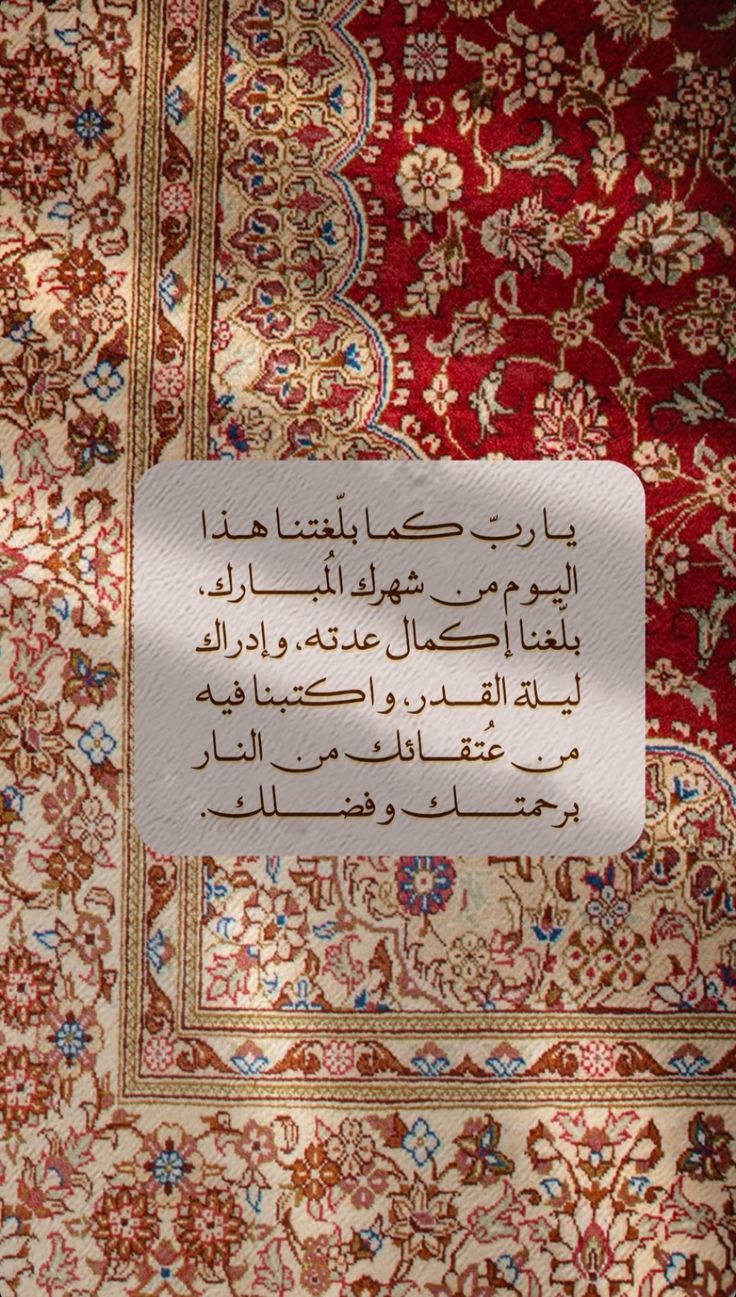 يا ربّ كما بلّغتنا هذا
اليوم من شهرك المُبارك،
بلّغنا إكمال عدته، وإدراك
ليلة القدر، واكتبنا فيه
من عُتقائك من النار
برحمتك وفضلك.